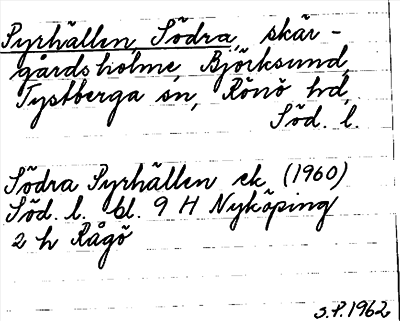 Syrhällen, Södra, skär-
gårdsholme, Björksund,
Tystberga sn, Rönö hd,
Söd. l.
Södra Syrhällen ek (1960)
Söd. l. bl. 9 H Nyköping
2 h Rågö
S.P. 1962